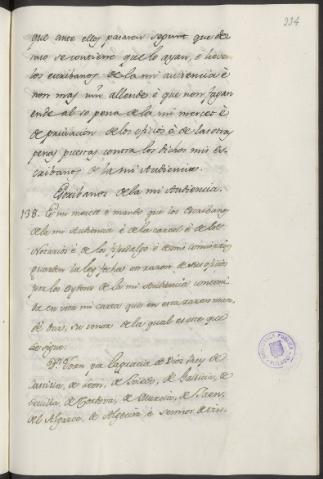 334
que ante ellos pasaren segunt que de
uso se contiene que lo ayan, è lieven
los escribanos de la mi audiencia è
non mas nin allende è que non fagan
ende al so pena de la mi merced è
de privacion de los oficios è de las otras
penas puestas contra los dichos mis es-
cribanos de la mi Audiencia.
Escribanos de la mi Audiencia.
138. Es mi merced è mando que los Escribanos
de la mi Audiencia è de la carcel è de los
Notarios è de los fijosdalgo è de mis
guarden la ley fechas en razon de sus oficios
por los oydores de la mi Audiencia
da en una mi carta que en esta razon
di, su tenor de la qual es este que
se sigue.
Dn. Joan por la gracia de Dios Rey de
Castilla, de Leon, de Toledo, de Galicia, de
Sevilla, de Cordova, de Murcia, de Jaen,
del Algarve, de Algecira è señor de